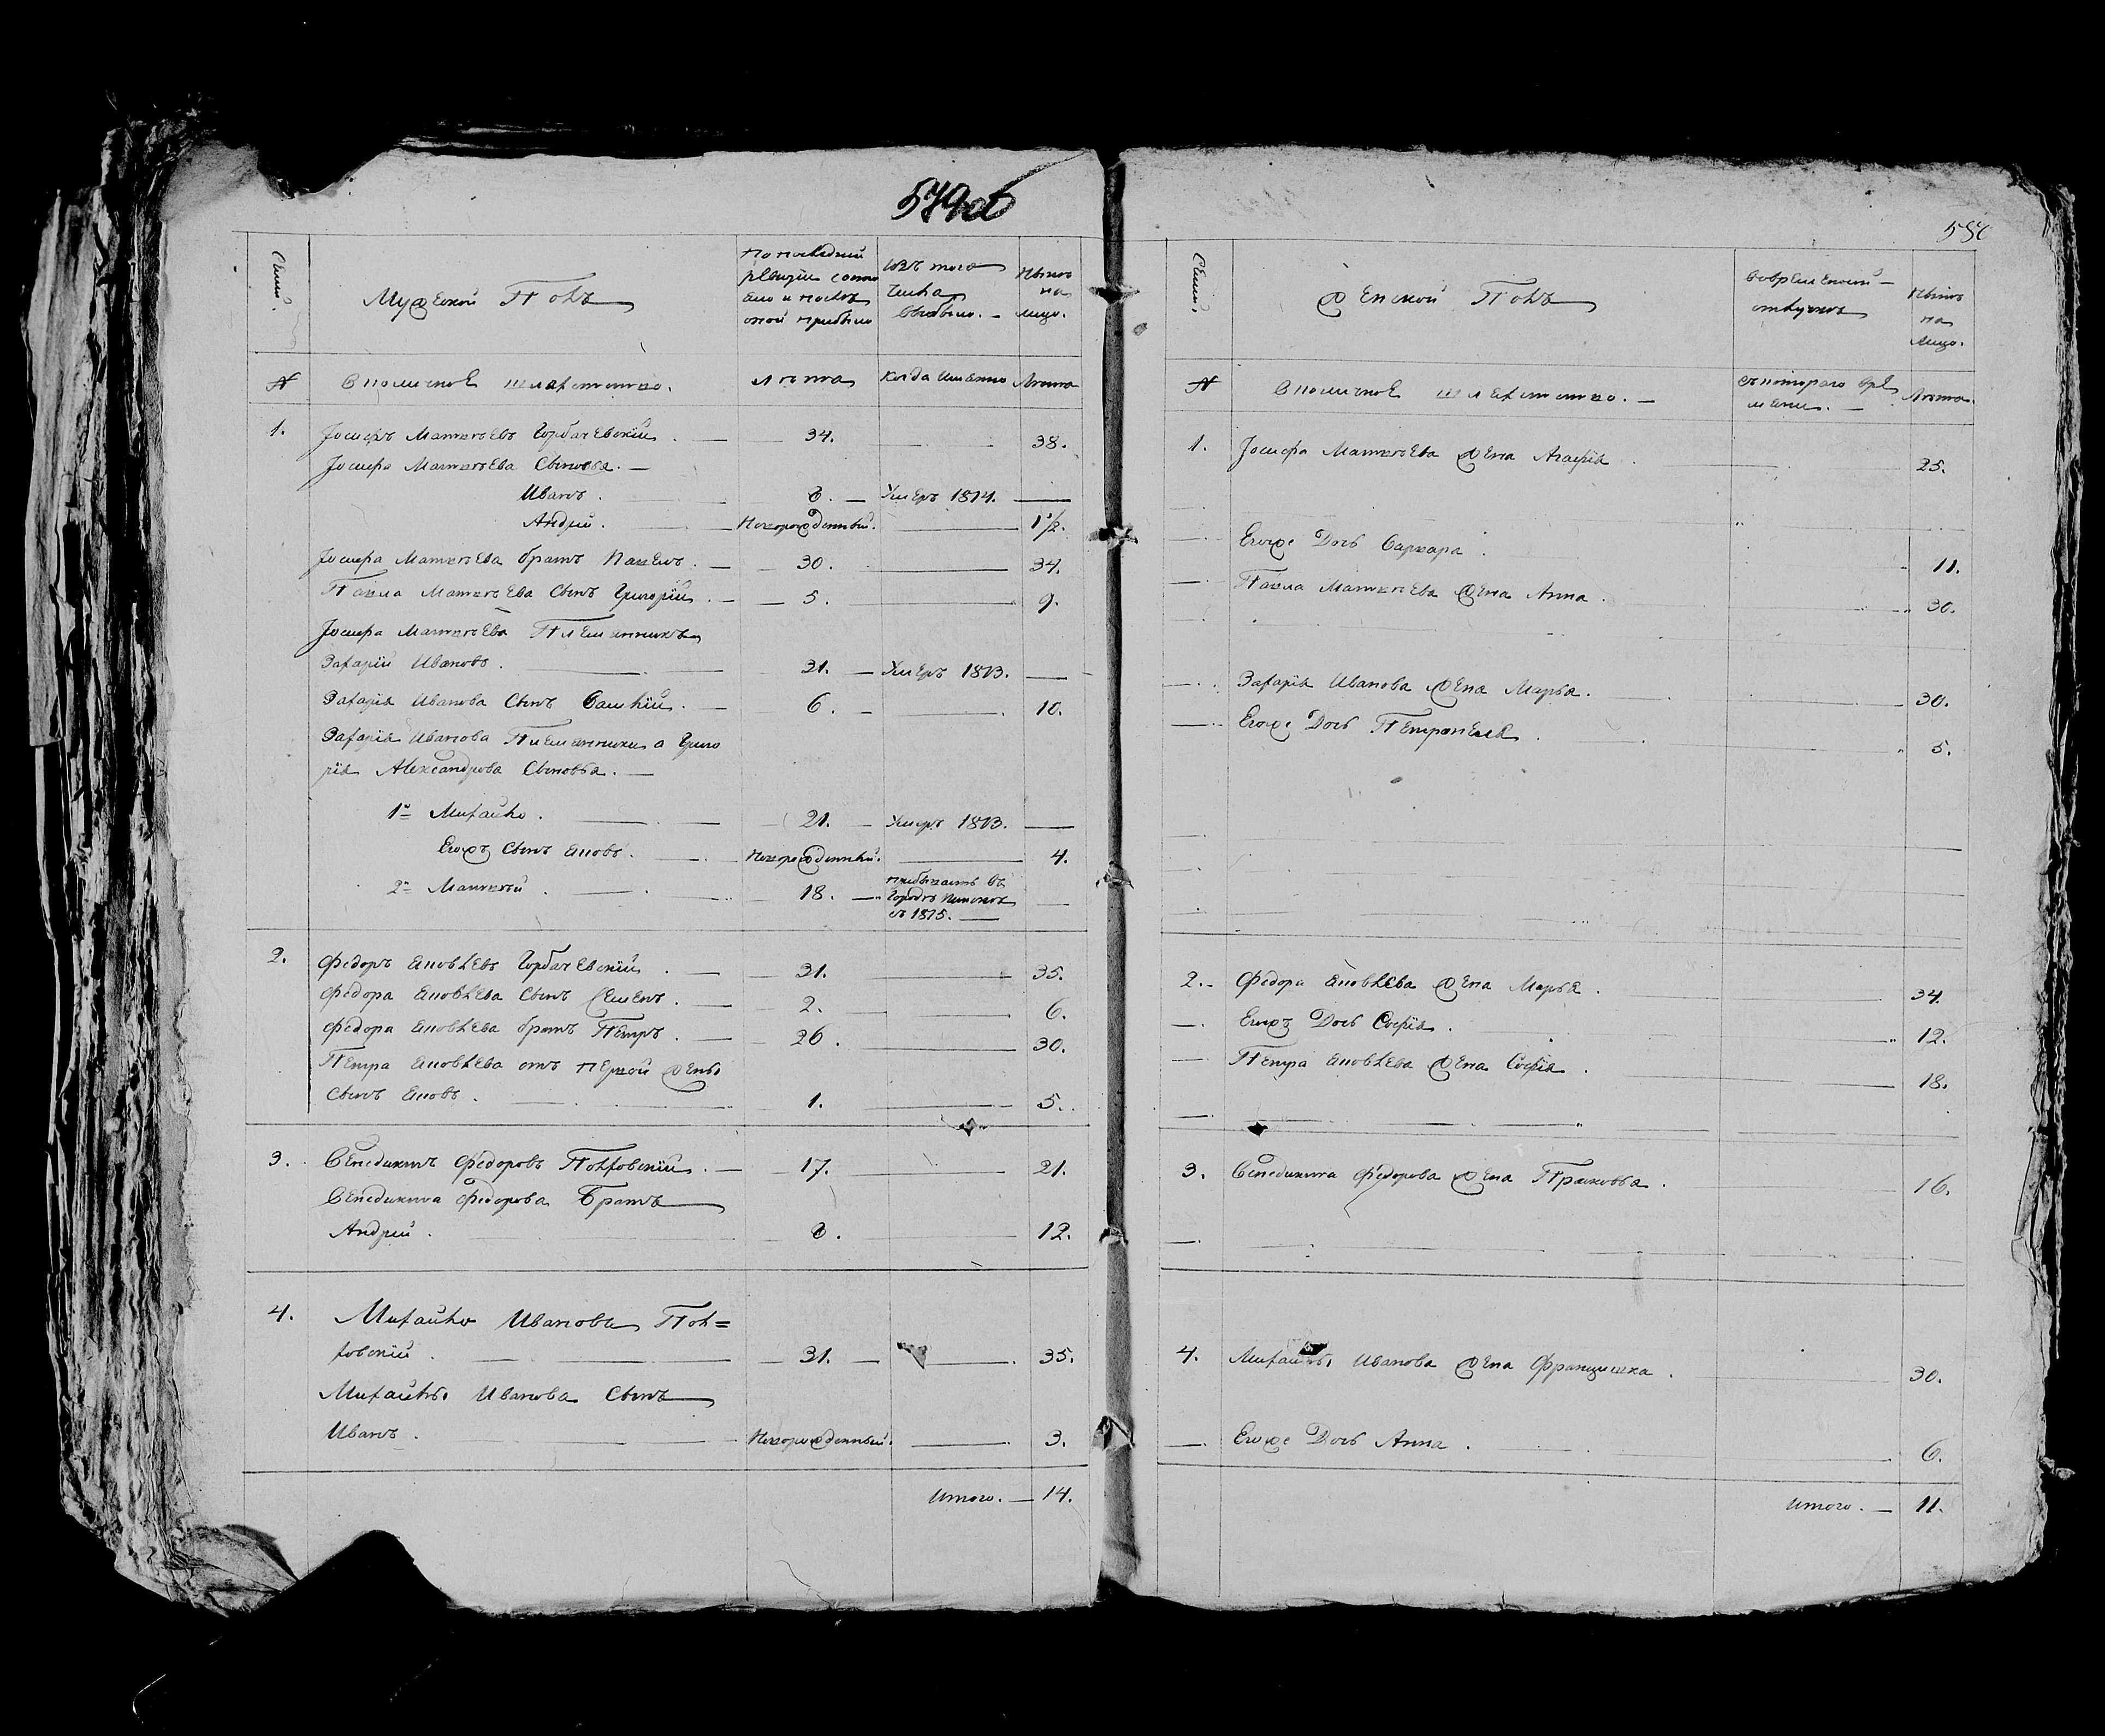 579об
Семьи.
Мужеской Полъ
По последней
ревизіи состо
яло и после
оной прибыло
Изъ того
числа
выбыло. —
Ныне
на
лицо.
№
Околичное шляхетство.
лета
когда имянно
Лета
1.
Іосифъ Матвеевъ Горбачевскій. —
34.
38.
Іосифа Матвеева Сыновья. —
Иванъ.
8. —
Умеръ 1814.
Андрей.
Новорожденный.
1 1/2.
Іосифа Матвеева братъ Павелъ. —
30.
34.
Павла Матвеева Сынъ Григорій. —
5.
9.
Іосифа Матвеева Племянникъ
Захарій Ивановъ.
31. —
Умеръ 1813.
Захарія Иванова Сынъ Василій. —
6.
10.
Захарія Иванова Племянники а Григо
рія Александрова Сыновья. —
1й Михайло.
21. —
Умеръ 1813.
Егожъ Сынъ Яковъ.
Новорожденный.
4.
2й Матвей.
18. —
пребываетъ въ
Городе Пинске
съ 1815. —
2.
Федоръ Яковлевъ Горбачевскій. —
31.
35.
Федора Яковлева Сынъ Семенъ. —
2.
6.
Федора Яковлева братъ Петръ. —
26.
30.
Петра Яковлева отъ первой жены
Сынъ Яковъ.
1.
5.
3.
Венедиктъ Федоровъ Полховскій. —
17.
21.
Венедикта Федорова Братъ
Андрей.
8.
12.
4.
Михайло Ивановъ Пол=
ховскій.
31. —
35.
Михайлы Иванова Сынъ
Иванъ.
Новорожденный.
3.
Итого. —
14.
580
Семьи.
Женской Полъ
Вовременной —
отлучке
Ныне
на
лицо.
№
Околичное шляхетство. —
съ котораго вре
мени. —
Лета.
1.
Іосифа Матвеева жена Агафія
25.
Егоже Дочь Варвара.
11.
Павла Матвеева жена Анна.
30.
Захарія Иванова жена Марья.
30.
Егоже Дочь Петронеля.
5.
2. —
Федора Яковлева жена Марья.
34.
Егожъ Дочь Софія.
12.
Петра Яковлева жена Софія.
18.
3.
Венедикта Федорова жена Прасковья.
16.
4.
Михайлы Иванова жена Францишка.
30.
Егоже Дочь Анна.
6.
Итого. —
11.